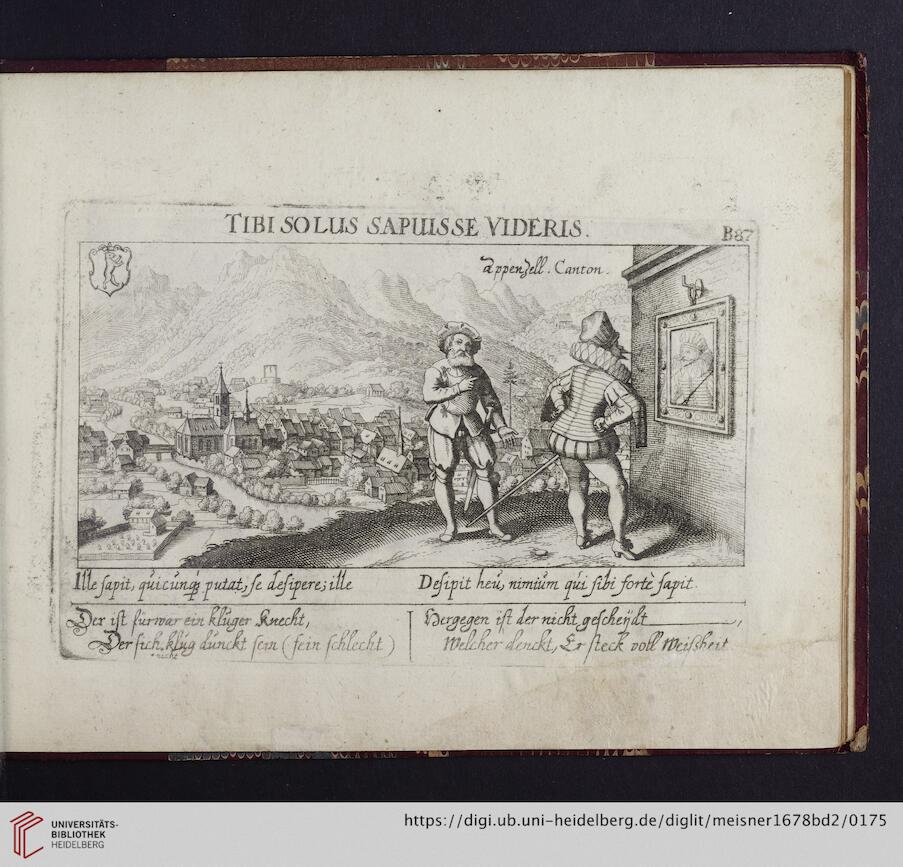 TIBI SOLUS SAPUISSE VIDERIS.
B87
Appenzell. Canton.
Ille sapit, quicunq; putat, se desipere; ille
Desipit heu, nimium qui sibi fortè sapit.
Der ist fürwar ein kluger Knecht,
Der sich klug dünckt sein (fein schlecht)
nicht
Hergegen ist der nicht gescheÿdt,
Welcher denckt, Er steck voll Weißheit
UNIVERSITÄTS-
BIBLIOTHEK
HEIDELBERG
https://digi.ub.uni-heidelberg.de/diglit/meisner1678bd2/0175